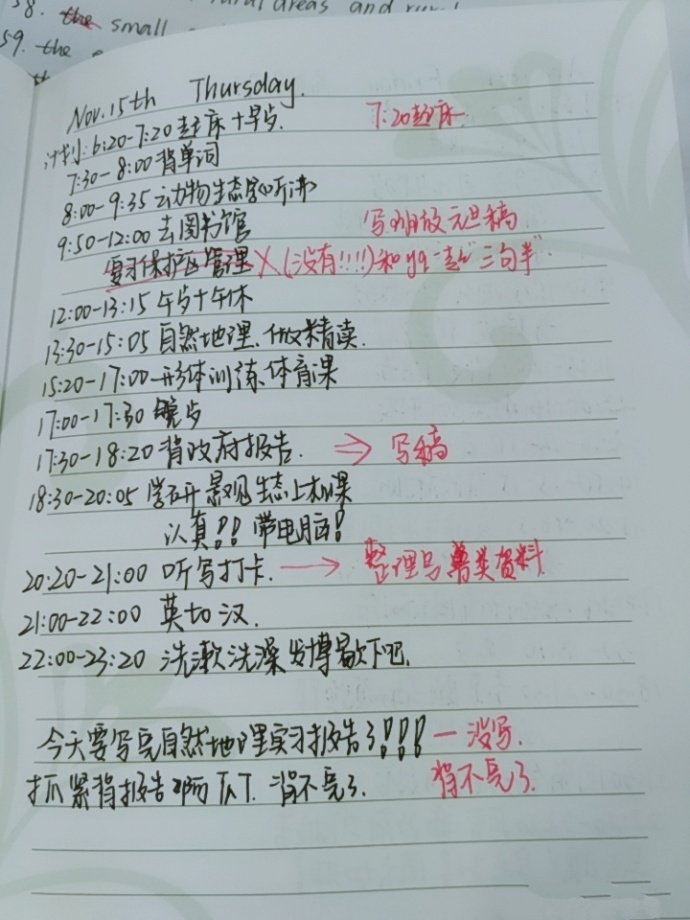 58. the small areas and rural
59. the
Nov. 15th Thursday.
计划: 6:20-7:20 起床+早歺. 7:20起床.
7:30-8:00 背单词
8:00-9:35 动物生态学(听讲)
9:50-12:00 去图书馆 写明故元旦稿
复习保护区管理 X (没有!!!!) 和yq "三句半"
12:00-13:15 午歺+午休
13:30-15:05 自然地理.做精读.
15:20-17:00 形体训练体育课
17:00-17:30 晚歺
17:30-18:20 背政府报告. ⇒ 写稿
18:30-20:05 学研 景观生态上机课
认真!! 带电脑!
20:20-21:00 听写打卡. → 整理鸟兽类资料
21:00-22:00 英切汉.
22:00-23:20 洗漱洗澡发博歇下吧.
今天要写完自然地理实习报告了!!!! — 没写.
抓紧背报告啊 背不完了. 背不完了.